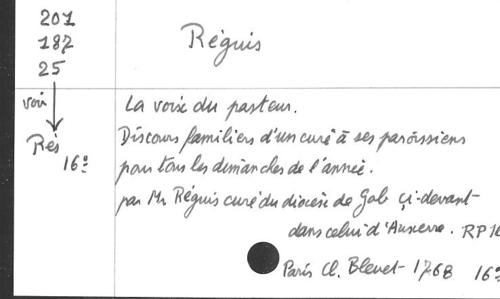 201
187
25
Réguis
voir
Rés
16º
La voix du pasteur.
Discours familiers d'un curé à ses paroissiens
pour tous les dimanches de l'année.
par Mr Réguis curé du diocèse de Gap ci-devant
dans celui d'Auxerre. RP
Paris Cl. Bleuet 1768 16º